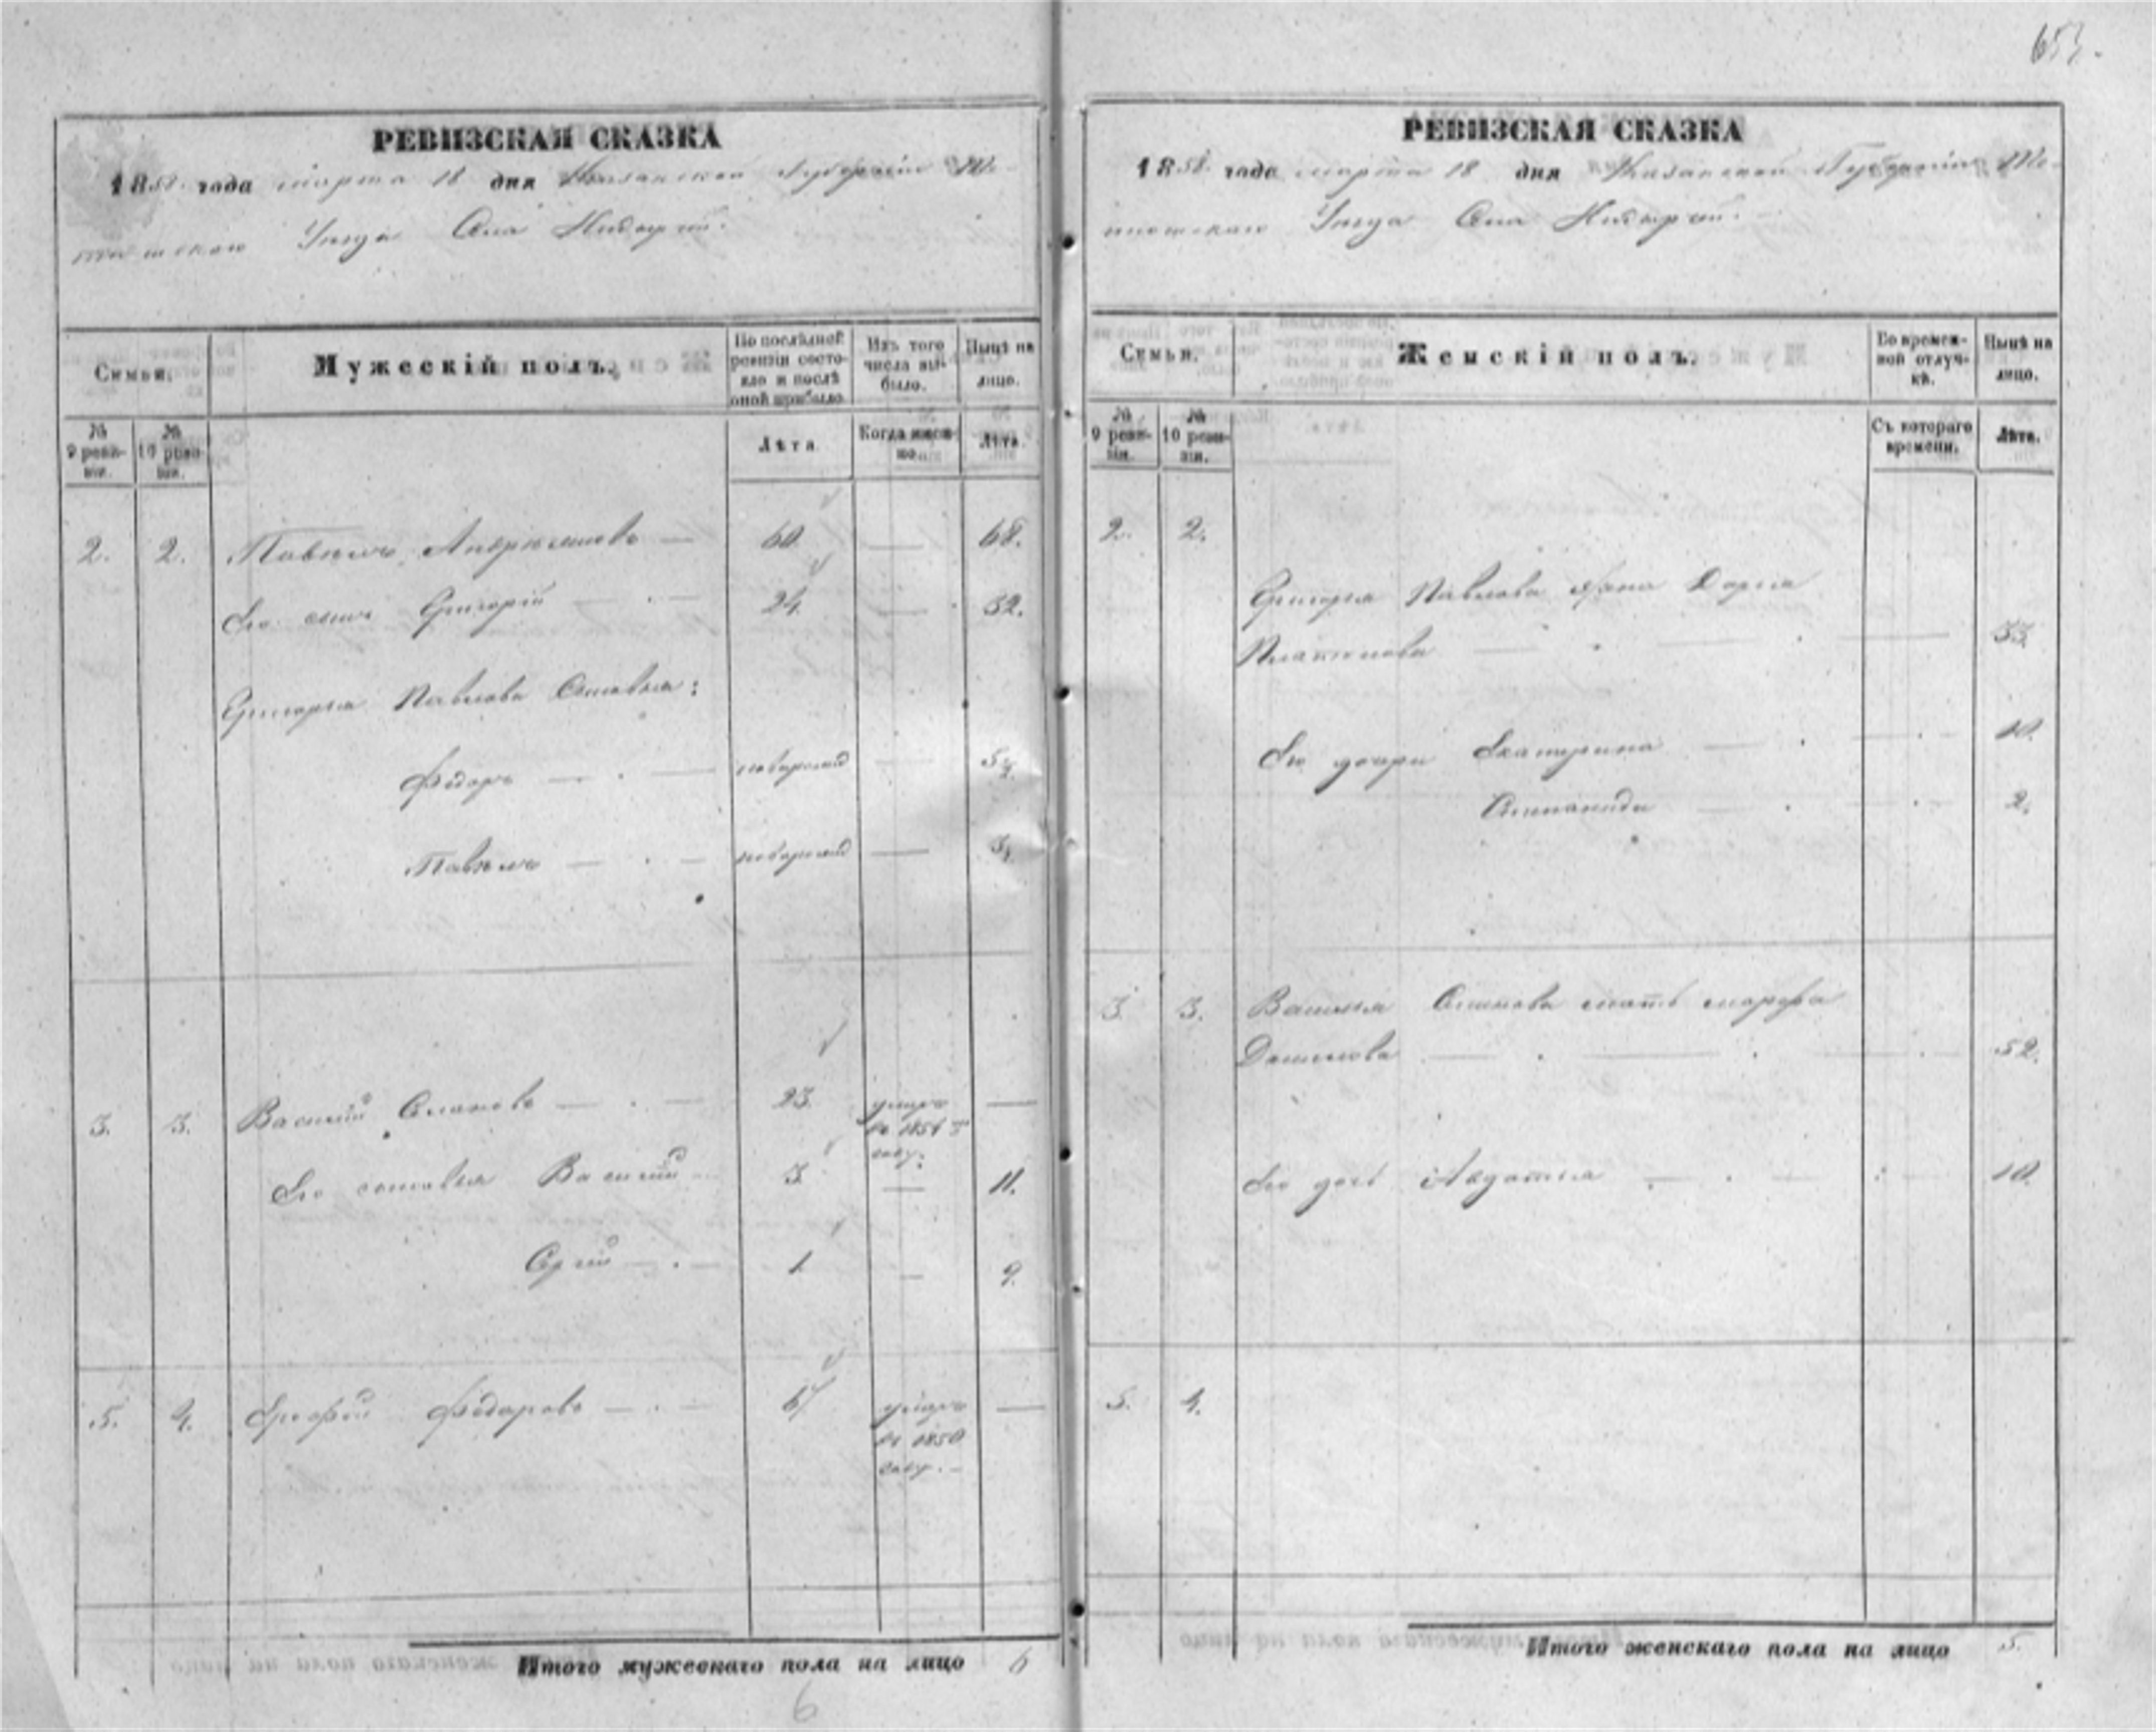 РЕВИЗСКАЯ СКАЗКА
1858 года марта 18 дня Казанской Губерніи
Уезда Села
Семьи.
Мужескій полъ.
По послѣдней ревизіи состояло и послѣ оной прибыло.
Изъ того числа выбыло.
Нынѣ на лицо.
№ 9 ревизіи.
№ 10 ревизіи.
Лѣта
Когда именно.
Лѣта.
2. 2. Павелъ — 60 — 68.
Его сынъ Григорій — 24. — 32.
Григорья Павлова Сыновья:
Федоръ — новорожд — 5
Павелъ — новорожд —
3. 3. Василій — 23. умеръ —
въ 185
году.
Его сыновья Василій — 3. — 11.
Сергій — 1. — 9.
5. 4. Ерофей Федоровъ — умеръ —
въ 1850
году. —
Итого мужескаго пола на лицо 6
6
РЕВИЗСКАЯ СКАЗКА
1858 года марта 18 дня Казанской Губерніи
Уезда Села
Семьи.
Женскій полъ.
Во временной отлучкѣ.
Нынѣ на лицо.
№ 9 ревизіи.
№ 10 ревизіи.
Съ котораго времени.
Лѣта.
2. 2.
Григорья Павлова жена Дарья
— 33.
Его дочери Екатерина — 10.
— 2.
3. 3. Василья мать
Данилова — 52.
Его дочь Авдотья — 10.
5. 4.
Итого женскаго пола на лицо 5.